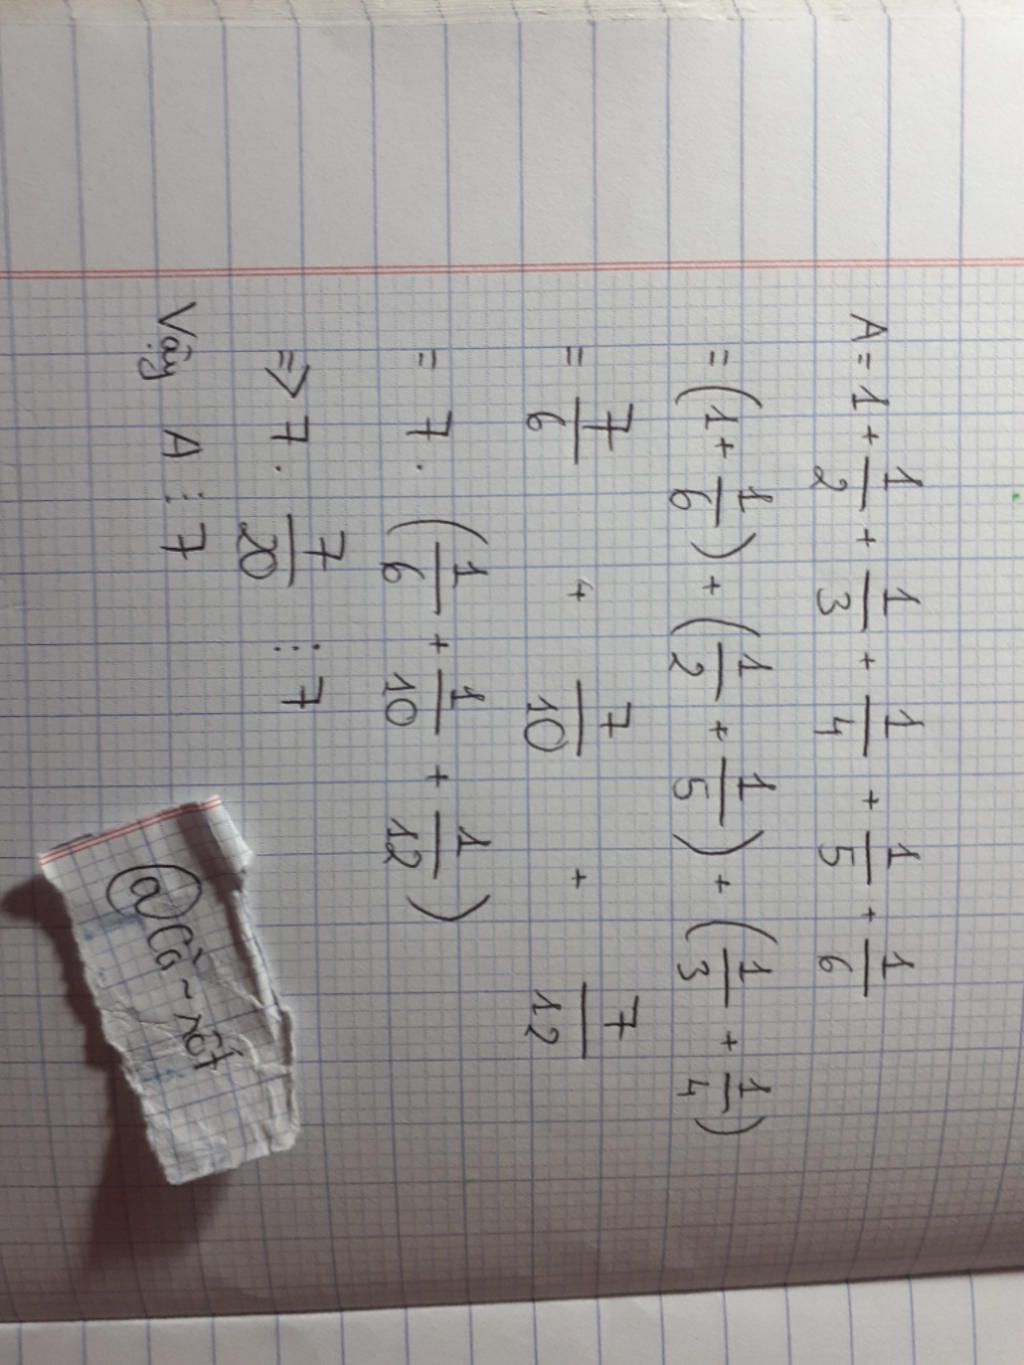 A = 1 + 1/2 + 1/3 + 1/4 + 1/5 + 1/6
= (1 + 1/6) + (1/2 + 1/5) + (1/3 + 1/4)
= 7/6 + 7/10 + 7/12
= 7 . (1/6 + 1/10 + 1/12)
=> 7 . 7/20 ⋮ 7
Vậy A ⋮ 7
@Cà~rốt